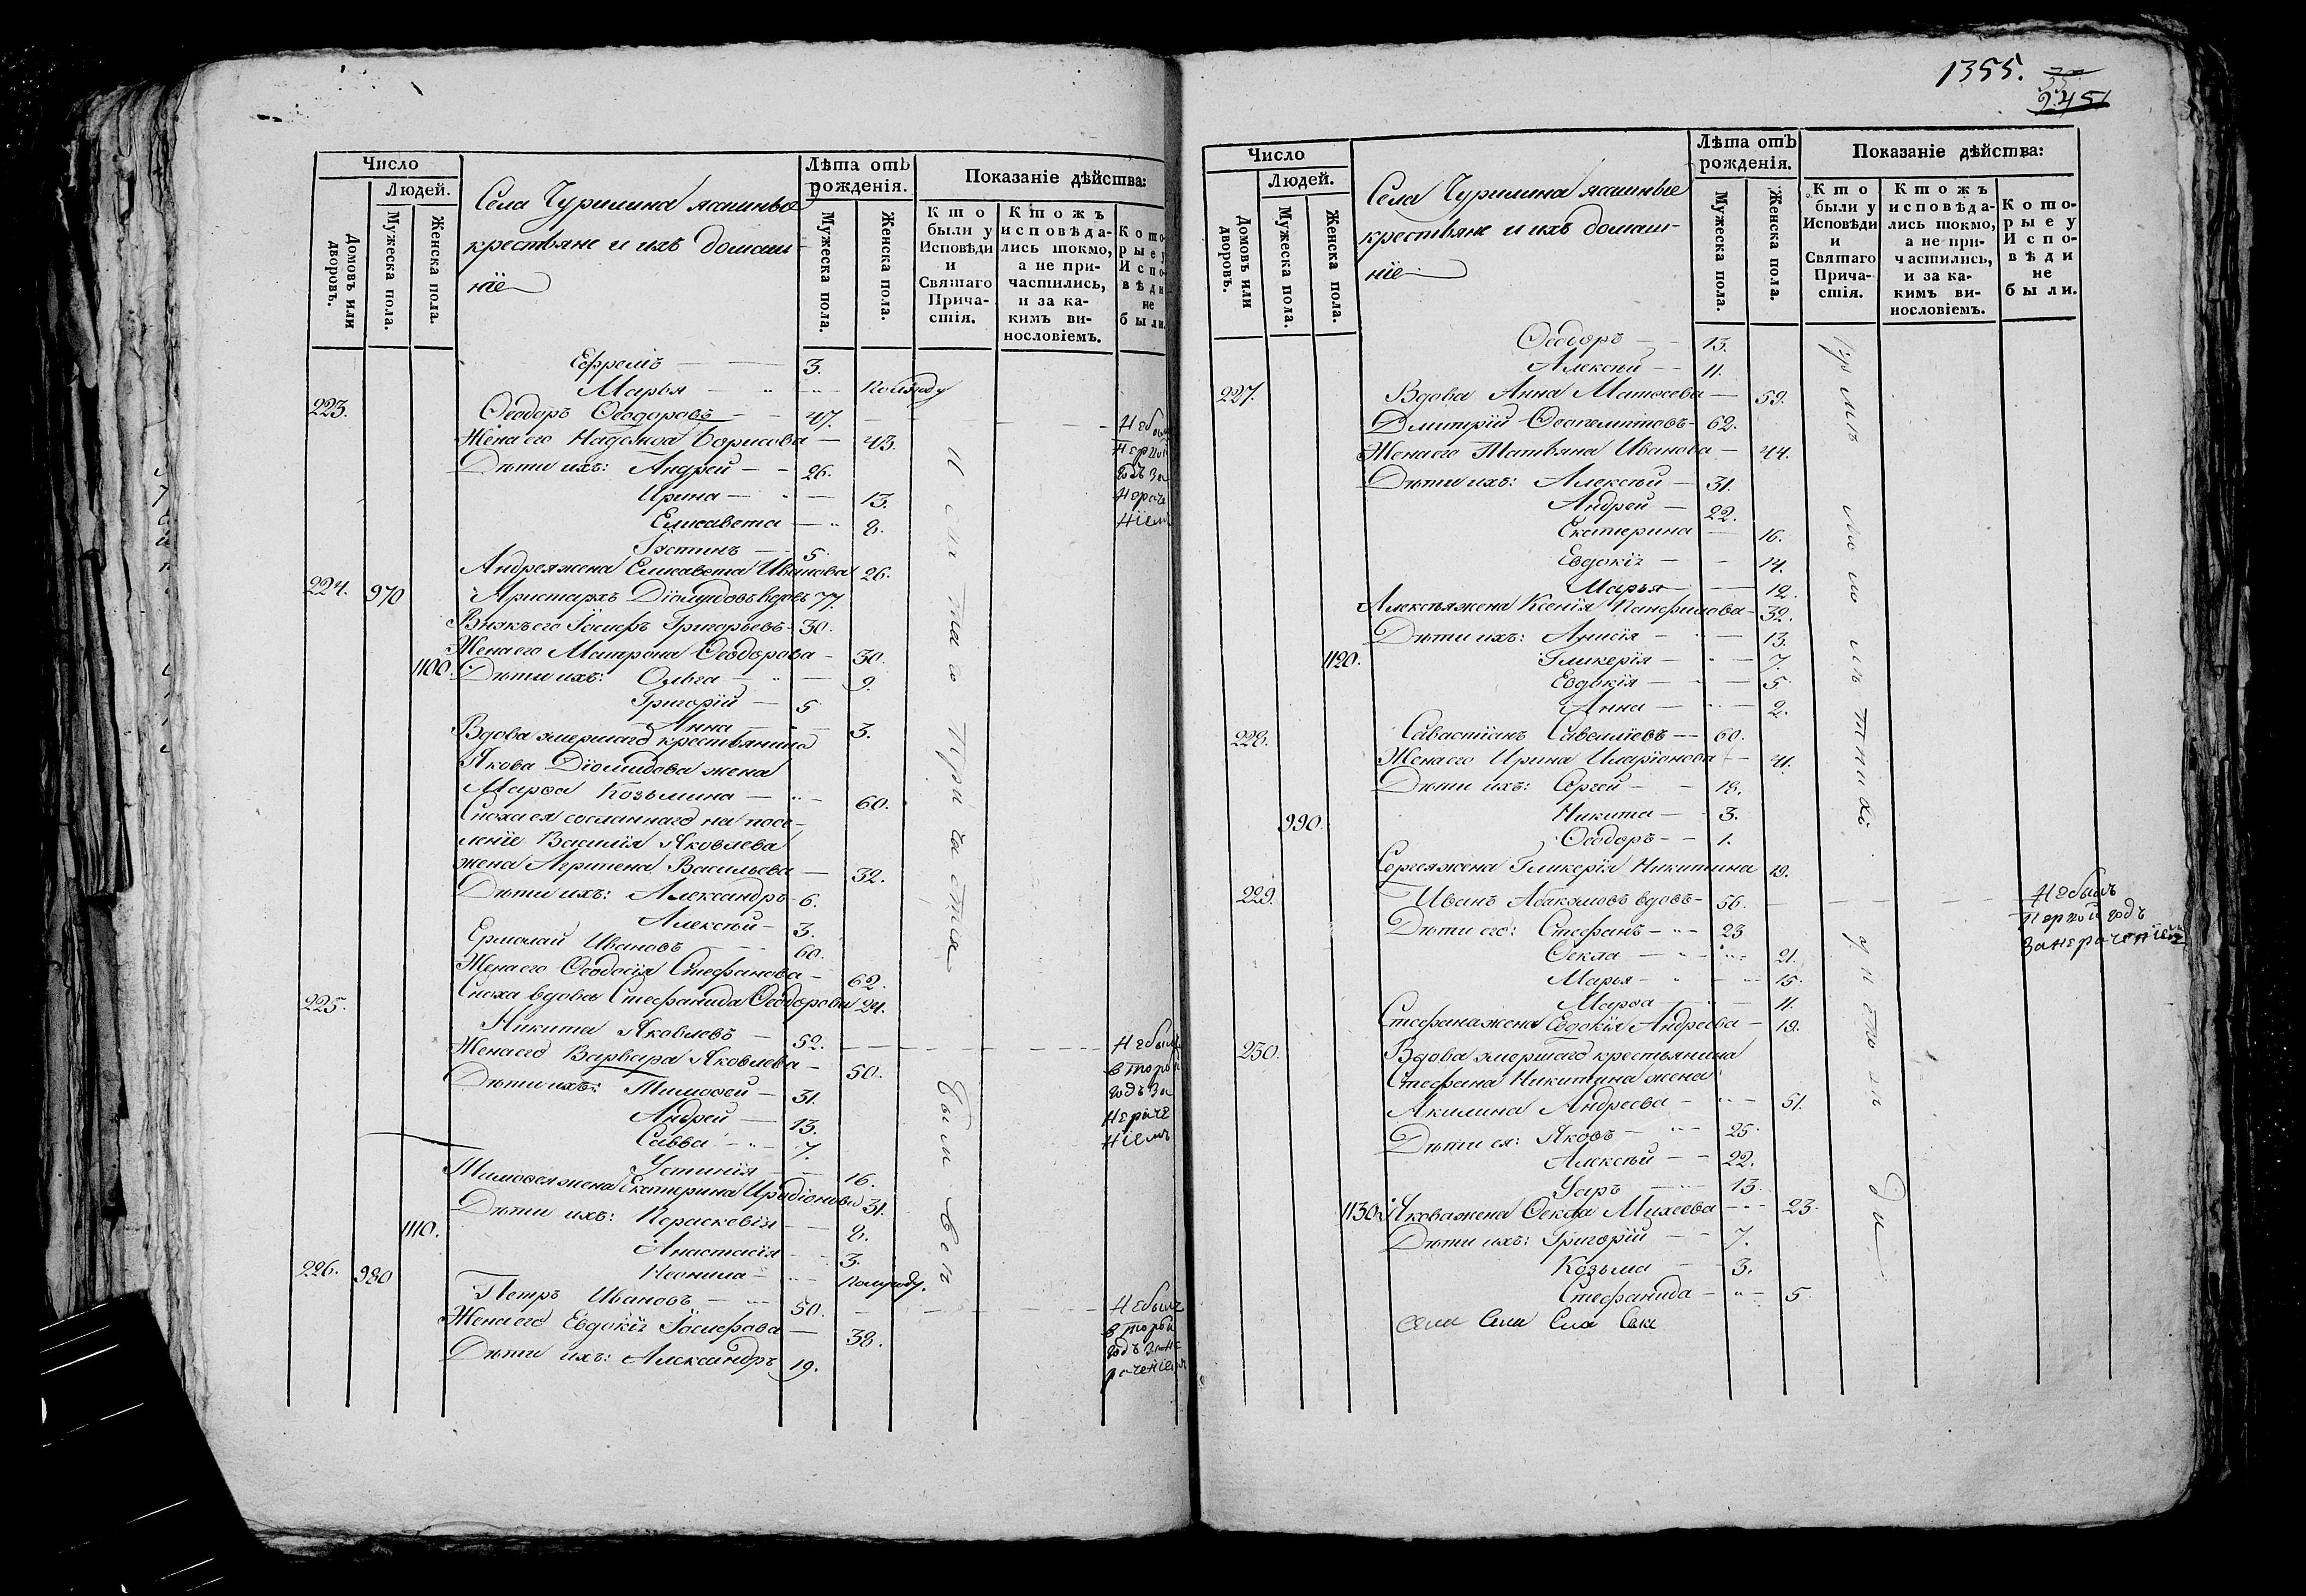 Число
Людей.
Домовъ или дворовъ.
Мужеска пола.
Женска пола.
Села Чурилина ясашные
крестьяне и ихъ домаш-
ніе
Лѣта отъ
рожденія.
Мужеска пола.
Женска пола.
Показаніе дѣйства:
Кто были у Исповѣди и Святаго Причастія.
Ктожъ исповѣдались токмо, а не причастились, и за какимъ винословіемъ.
Которые у Исповѣди не были.
Ефремъ 3.
Марья
223. Ѳеодоръ Ѳеодоровъ 47. Небы
Жена его Надежда Борисова 43.
Дѣти ихъ: Андрей 26. годъ за
Ирина 13. нераче
Елисавета 8. ніемъ
Іустинъ 5.
Андрея жена Елисавета Иванова 26.
224. 970 Аристархъ Діомидовъ вдовъ 77.
Внукъ его Іосифъ Григорьевъ 30.
Жена его Матрона Ѳеодорова 30.
1100. Дѣти ихъ: Ольга 9.
Григорій 5
Анна 3.
Вдова умершаго крестьянина
Якова Діомидова жена
Марѳа Козьмина 60.
Сноха ея сосланнаго на посе-
леніе Василія Яковлева
жена Агрипена Васильева 32.
Дѣти ихъ: Александръ 6.
Алексѣй 3.
Ермолай Ивановъ 60.
Жена его Ѳеодосія Стефанова 62.
Сноха вдова Стефанида Ѳеодорова 24.
225. Никита Яковлевъ 52. Небылъ
Жена его Варвара Яковлева 50. второй
Дѣти ихъ: Тимоѳей 31. годъ за
Андрей 13. нераче
Савва 7. ніемъ
Устинія 16.
Тимоѳея жена Екатерина Иродіонова 31.
1110. Дѣти ихъ: Параскевія 8.
Анастасія 3.
Неонила полугоду.
226. 980 Петръ Ивановъ 50. Небылъ
Жена его Евдокія Іосифова 38. второй
Дѣти ихъ: Александръ 19. годъ зане
раченіемъ
И Святаго Причастія
были вси
1355.
2451
Число
Людей.
Домовъ или дворовъ.
Мужеска пола.
Женска пола.
Села Чурилина ясашные
крестьяне и ихъ домаш-
ніе
Лѣта отъ
рожденія.
Мужеска пола.
Женска пола.
Показаніе дѣйства:
Кто были у Исповѣди и Святаго Причастія.
Ктожъ исповѣдались токмо, а не причастились, и за какимъ винословіемъ.
Которые у Исповѣди не были.
Ѳеодоръ 13.
Алексѣй 11.
227. Вдова Анна Матѳеева 59.
Дмитрій Ѳеопемптовъ 62.
Жена его Татьяна Иванова 44.
Дѣти ихъ: Алексѣй 31.
Андрей 22.
Екатерина 16.
Евдокія 14.
Марья 12.
Алексѣя жена Ксенія Панфилова 32.
Дѣти ихъ: Анисія 13.
1120. Гликерія 7.
Евдокія 5
Анна 2.
228. Савастіанъ Савеліевъ 60.
Жена его Ирина Иларіонова 41.
Дѣти ихъ: Сергей 18.
990. Никита 3.
Ѳеодоръ 1.
Сергея жена Гликерія Никитина 19.
229. Иванъ Абакумовъ вдовъ 56. Небылъ
Дѣти его: Стефанъ 23 первой годъ
Ѳекла 21. занераченіемъ
Марья 15.
Марѳа 11.
Стефана жена Евдокія Андреева 19.
230. Вдова умершаго крестьянина
Стефана Никитина жена
Акилина Андреева 51.
Дѣти ея: Яковъ 25.
Алексѣй 22.
Уаръ 13.
1130. Якова жена Ѳекла Михеева 23.
Дѣти ихъ: Григорій 7.
Козьма 3.
Стефанида 5.